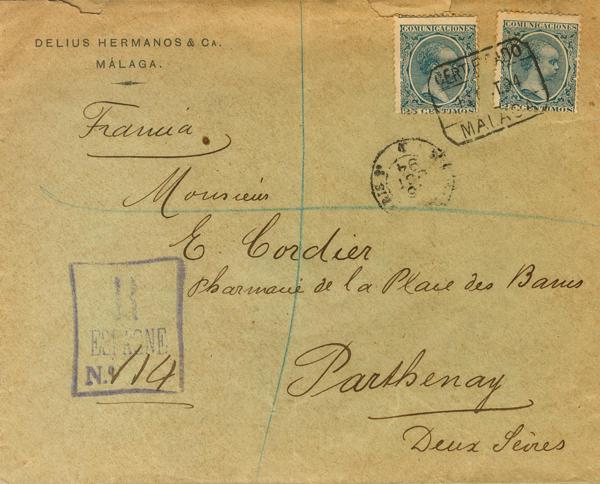 DELIUS HERMANOS & CA.
MÁLAGA.
COMUNICACIONES
25 CENTIMOS
COMUNICACIONES
25 CENTIMOS
CERTIFICADO
94
MALAGA
Francia
Monsieur
E. Cordier
Pharmacie de la Place des Bancs
Parthenay
Deux Sèvres
R
ESPAGNE
N.º 114